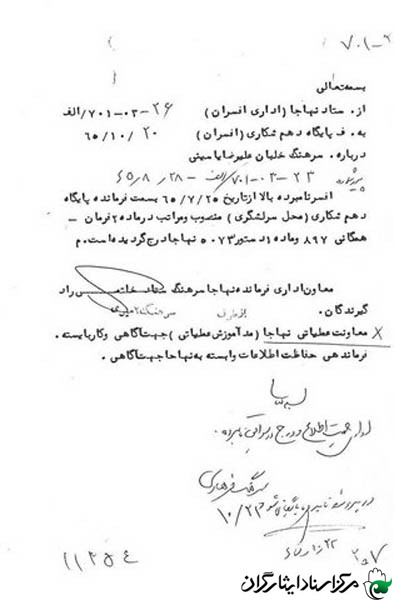 ۷۰۱-۳
بسمه تعالی
از. ستاد نهاجا (اداری افسران) ۲۶-۰۳-۷۰۱/الف
به. ف پایگاه دهم شکاری (افسران) ۲۰/۱۰/۶۵
درباره. سرهنگ خلبان علیرضا یاسینی
پیرو شماره ۲۳-۰۳-۷۰۱/الف-۲۸/۸/۶۵
افسر نامبرده بالا از تاریخ ۶۵/۷/۲۵ بسمت فرمانده پایگاه
دهم شکاری (محل سرلشگری) منصوب و مراتب در ماده ۲ فرمان -
همگانی ۸۹۷ و ماده ۱ دستور ۵۰۷۳ نهاجا درج گردیده است.م
معاون اداری فرمانده نهاجا سرهنگ ستاد
گیرندگان. از طرف سرهنگ ۲
معاونت عملیاتی نهاجا (مد آموزش عملیاتی) جهت آگاهی و کار بایسته.
فرماندهی حفاظت اطلاعات وابسته به نهاجا جهت آگاهی.
جهت اطلاع و درج در سوابق نامبرده.
۱۰/۲۳
۱۱۲۵۴
مرکز اسناد ایثارگران